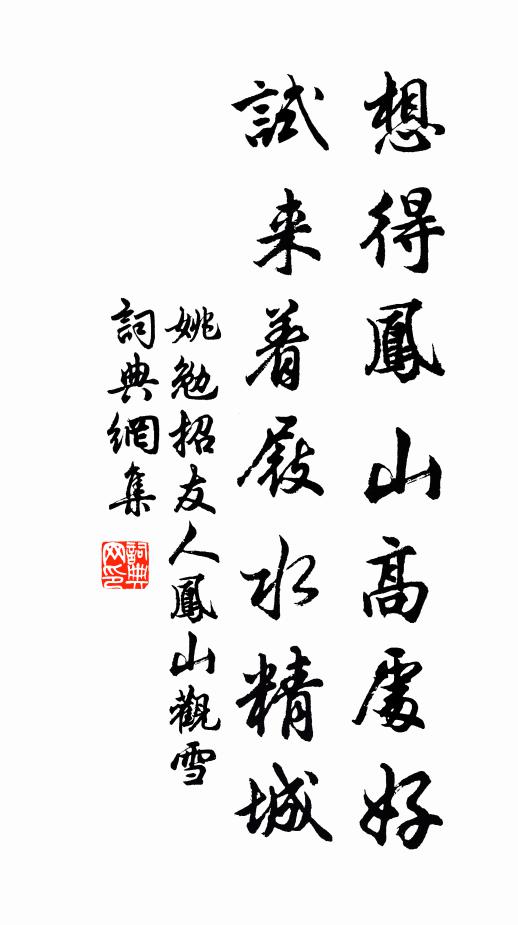 想得鳳山高處好
試来着屐水精城
姚勉招友人鳳山觀雪
詞典網集
詞典网印